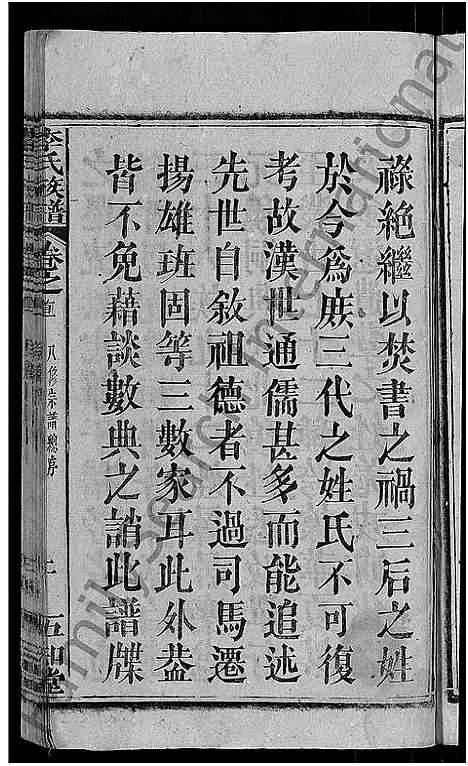 祿絶繼以焚書之禍三后之姓
於今爲庶三代之姓氏不可復
考故漢世通儒甚多而能追述
先世自敘祖德者不過司馬遷
揚雄班固等三數家耳此外葢
皆不免藉談數典之誚此譜牒
李氏族譜
卷之首
八修宗譜總序
五知堂
Family Search International